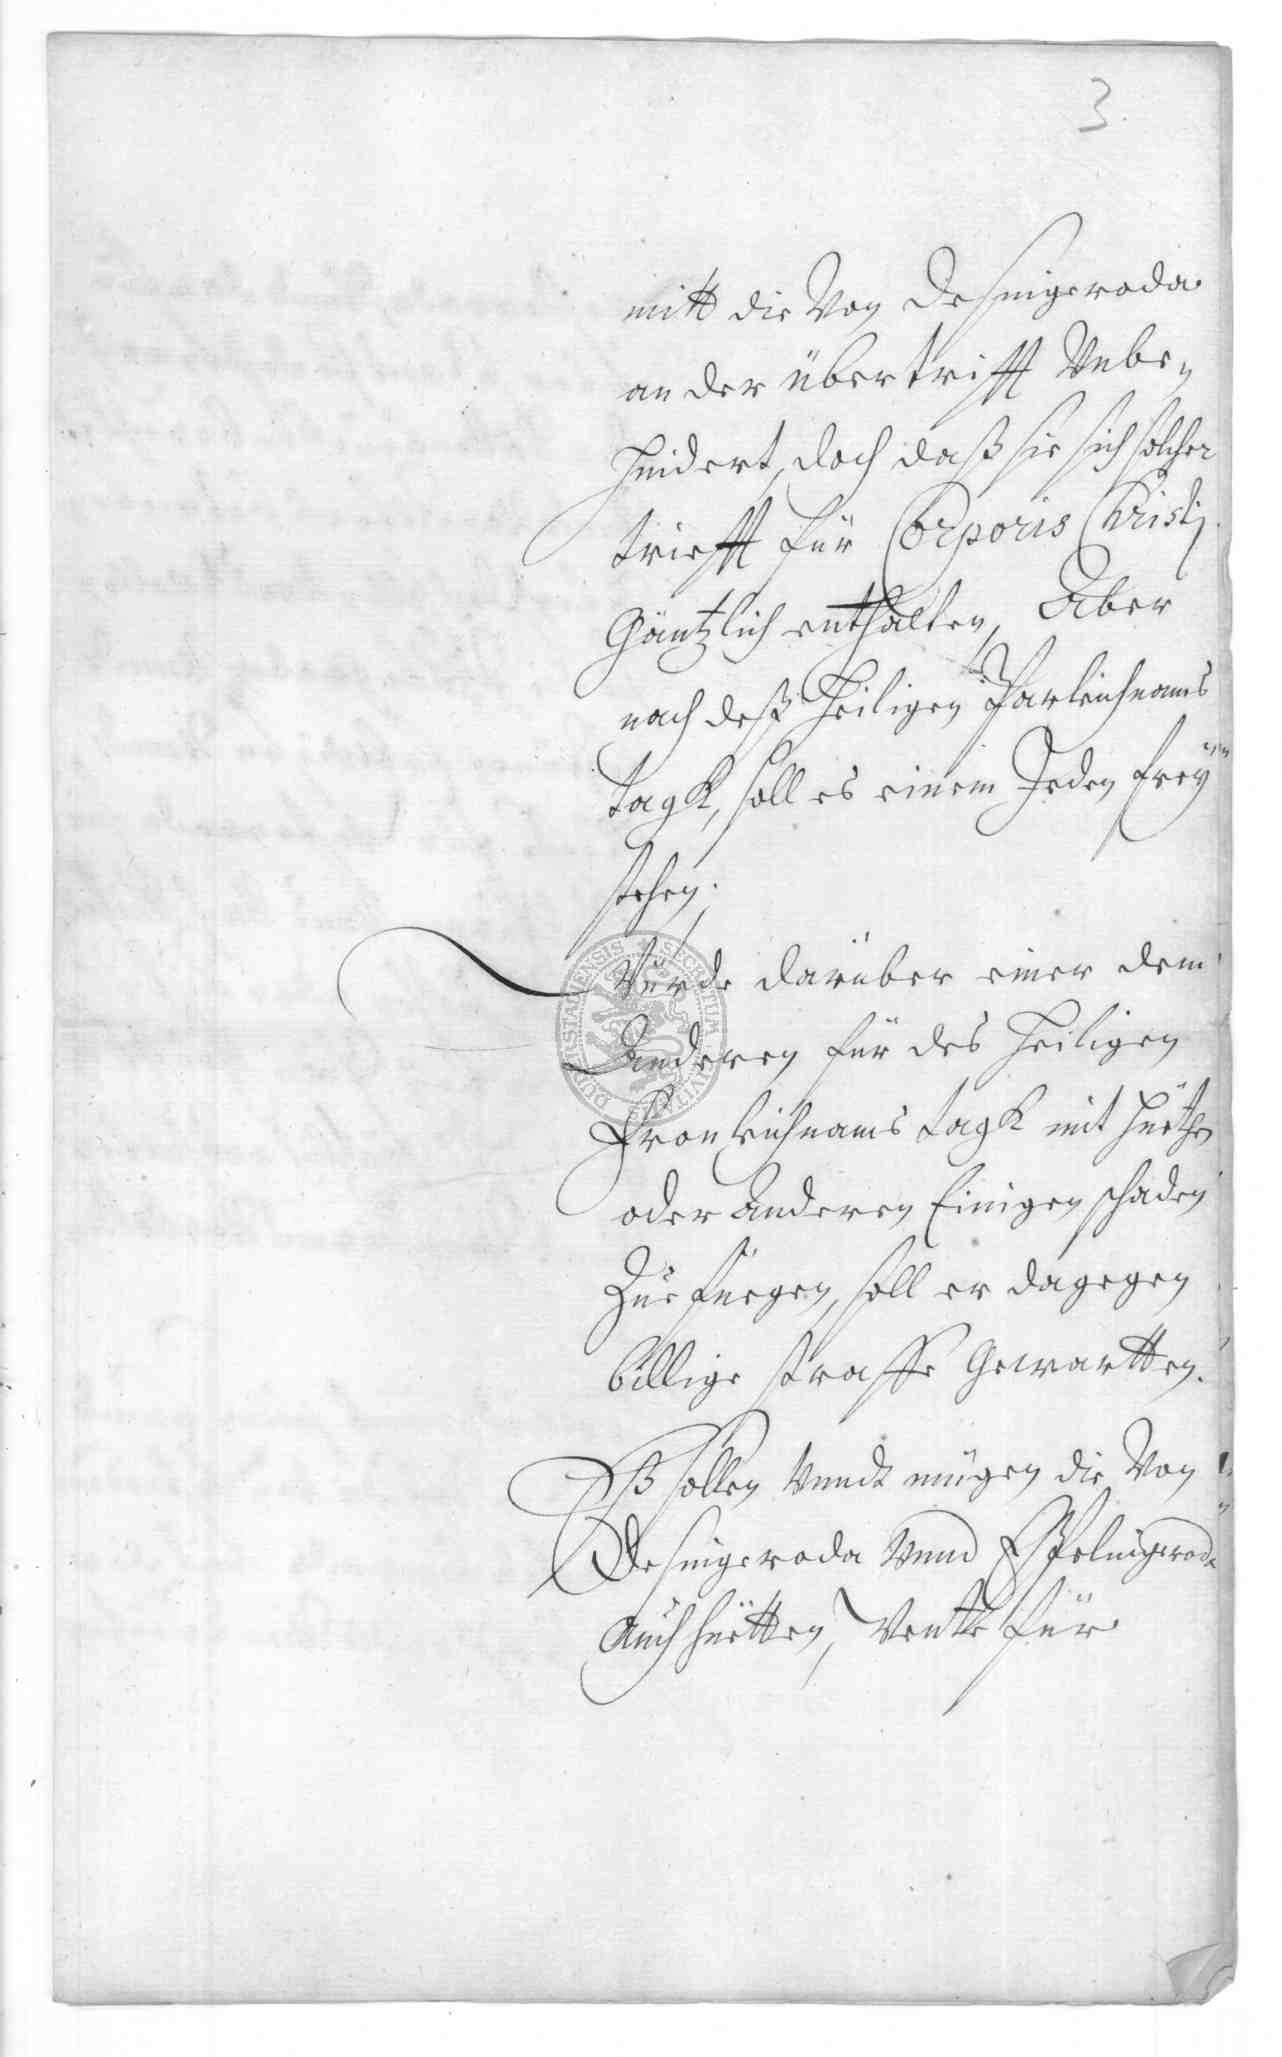 3.
mitt die Von Desingeroda
an der übertrifft Unbe,,
hindert, doch daß sie sich solcher
trifft für Corporis Christi
Gäntzlich enthalten, Aber
nach deß Heiligen Varleichnams
tagk, soll es einem Jeden freÿ
stehen;
Würde darüber einer dem
Anderen für des Heiligen
Fronleichnams tagk mit hüthe
oder Anderen Einigen schaden
Zue füegen, soll er dagegen
billige straffe Gewartten.
Eß sollen Vnndt mügen die Von
Desingeroda Vnnd Eßpelingeroda
Auch hütten, für
SECRETUM CIVITATIS DUDERSTADENSIS